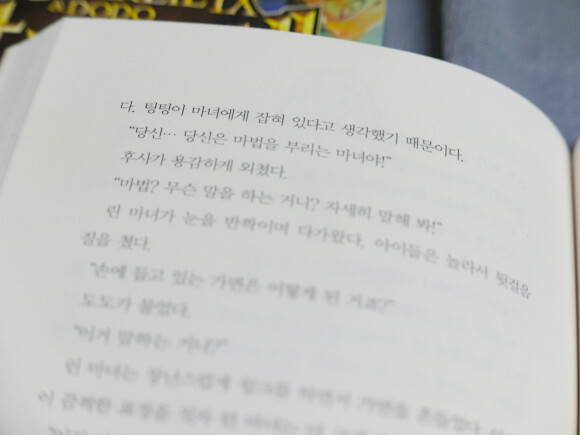 & DODO
다. 팅팅이 마녀에게 잡혀 있다고 생각했기 때문이다.
“당신… 당신은 마법을 부리는 마녀야!”
후사가 용감하게 외쳤다.
“마법? 무슨 말을 하는 거니? 자세히 말해 봐!”
린 마녀가 눈을 반짝이며 다가왔다. 아이들은 놀라서 뒷걸음
질을 쳤다.
“손에 들고 있는 가면은 어떻게 된 거죠?”
도도가 물었다.
“이거 말하는 거니?”
린 마녀는 장난스럽게 윙크를 하면서 가면을 흔들었다
이 끔찍한 표정을